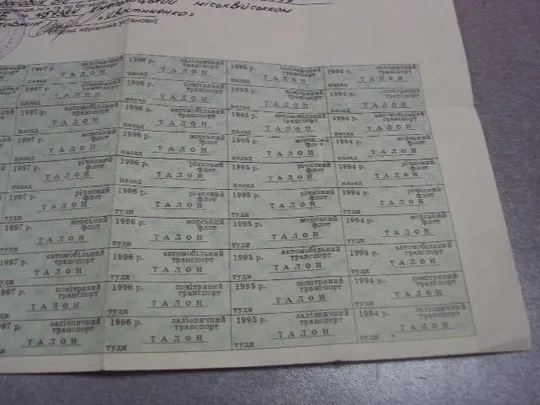 міськвійськом
(підпис керівника установи)
1997 р. залізничний транспорт 1996 р. залізничний транспорт 1995 р. залізничний транспорт 1994 р. залізничний транспорт
назад ТАЛОН назад ТАЛОН назад ТАЛОН назад ТАЛОН
1997 р. повітряний транспорт 1996 р. повітряний транспорт 1995 р. повітряний транспорт 1994 р. повітряний транспорт
назад ТАЛОН назад ТАЛОН назад ТАЛОН назад ТАЛОН
1997 р. автомобільний транспорт 1996 р. автомобільний транспорт 1995 р. автомобільний транспорт 1994 р. автомобільний транспорт
назад ТАЛОН назад ТАЛОН назад ТАЛОН назад ТАЛОН
1997 р. морський флот 1996 р. морський флот 1995 р. морський флот 1994 р. морський флот
назад ТАЛОН назад ТАЛОН назад ТАЛОН назад ТАЛОН
1997 р. річковий флот 1996 р. річковий флот 1995 р. річковий флот 1994 р. річковий флот
назад ТАЛОН назад ТАЛОН назад ТАЛОН назад ТАЛОН
1997 р. річковий флот 1996 р. річковий флот 1995 р. річковий флот 1994 р. річковий флот
туди ТАЛОН туди ТАЛОН туди ТАЛОН туди ТАЛОН
1997 р. морський флот 1996 р. морський флот 1995 р. морський флот 1994 р. морський флот
туди ТАЛОН туди ТАЛОН туди ТАЛОН туди ТАЛОН
1997 р. автомобільний транспорт 1996 р. автомобільний транспорт 1995 р. автомобільний транспорт 1994 р. автомобільний транспорт
ТАЛОН туди ТАЛОН туди ТАЛОН туди ТАЛОН
1997 р. повітряний транспорт 1996 р. повітряний транспорт 1995 р. повітряний транспорт 1994 р. повітряний транспорт
ТАЛОН туди ТАЛОН туди ТАЛОН туди ТАЛОН
1997 р. залізничний транспорт 1996 р. залізничний транспорт 1995 р. залізничний транспорт 1994 р. залізничний транспорт
ТАЛОН туди ТАЛОН туди ТАЛОН туди ТАЛОН